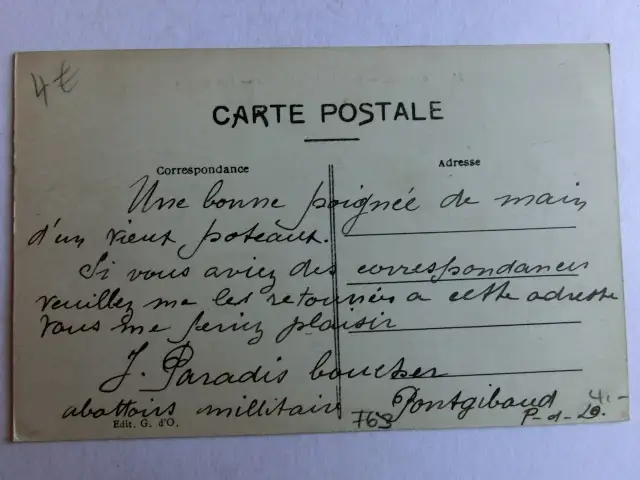 4€
CARTE POSTALE
Correspondance
Adresse
Une bonne poignée de main
d'un vieux poteaux.
Si vous aviez des correspondances
veuillez me les retournées a cette adresse
vous me feriez plaisir
J. Paradis boucher
abattoirs millitaire Pontgibaud
4.-
P-d-D.
763
Edit. G. d'O.